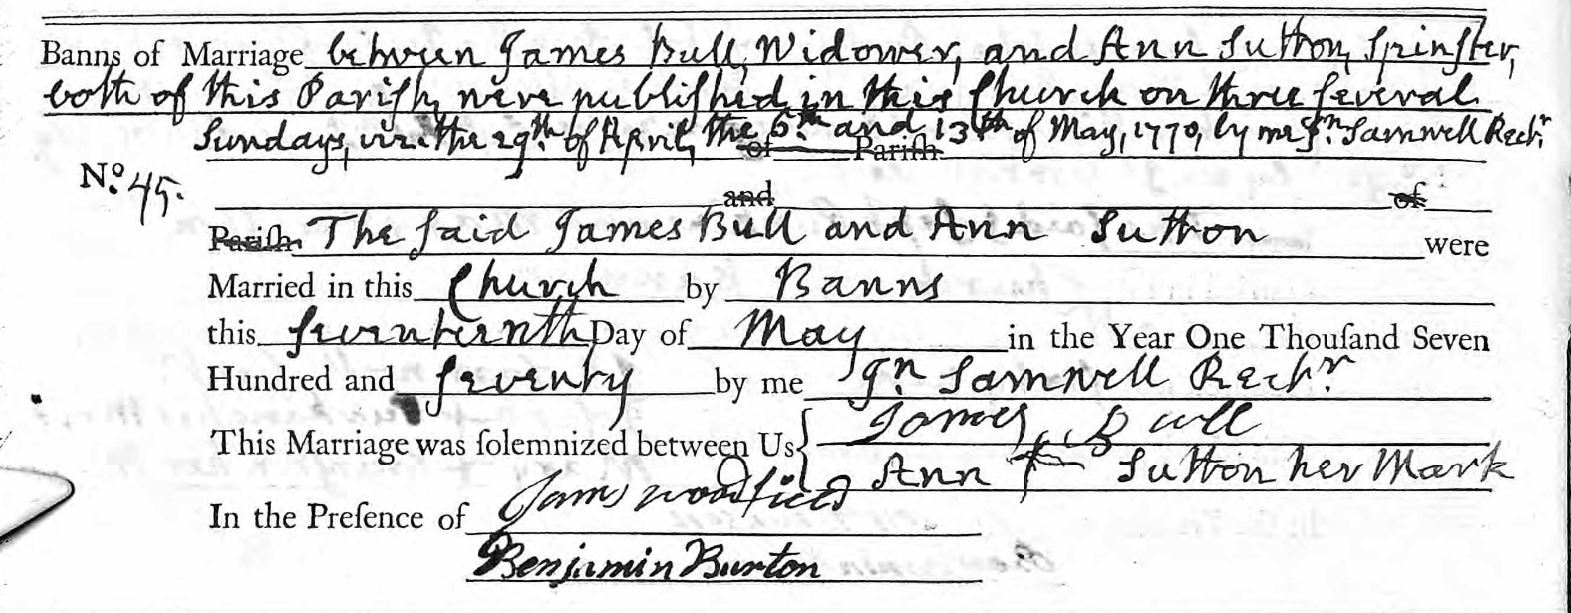 Banns of Marriage between James Bull, Widower, and Ann Sutton, Spinſter,
both of this Pariſh, were publiſhed in this Church on three ſeveral
Sundays, viz. the 29th. of April, the 6th. and 13th of May, 1770, by me Jn. Samwell Rectr.
of Pariſh
No. 45.
and of
Pariſh. The ſaid James Bull and Ann Sutton were
Married in this Church by Banns
this ſeventeenth Day of May in the Year One Thouſand Seven
Hundred and ſeventy by me Jn. Samwell Rectr
This Marriage was ſolemnized between Us { James Bull
Ann + Sutton her Mark
In the Preſence of James Woodfield
Benjamin Burton